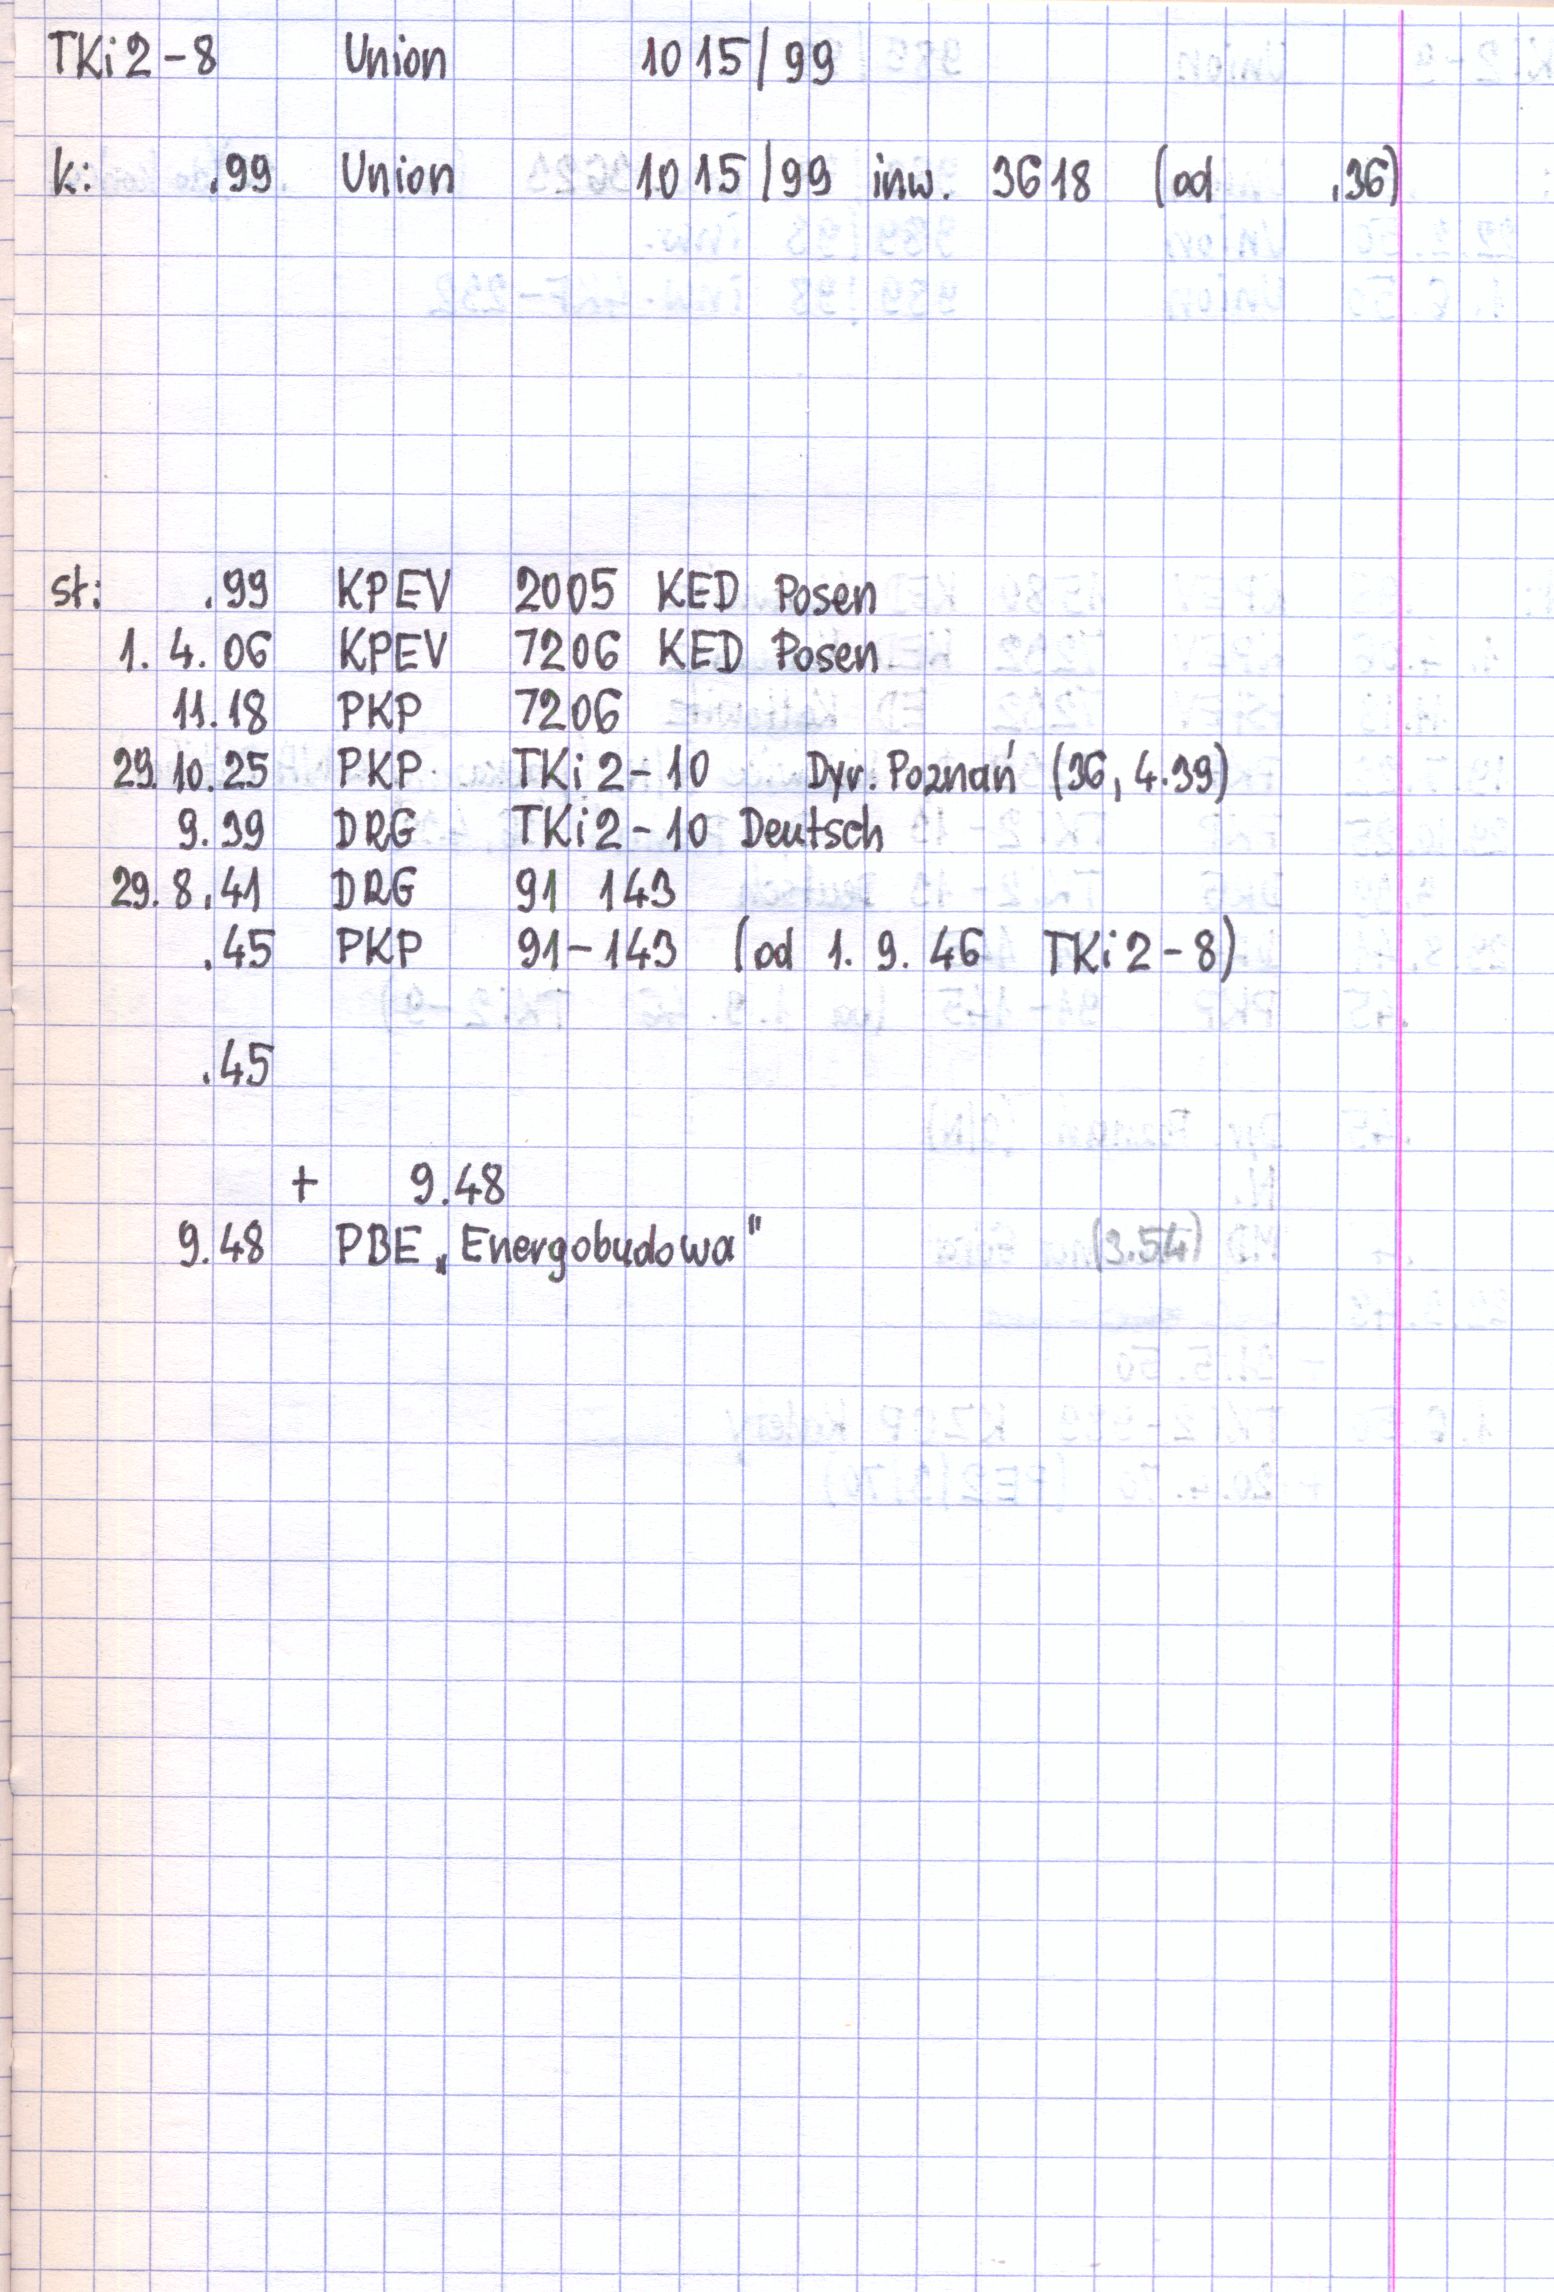 TKi2-8 Union 1015/99
k: .99 Union 1015/99 inw. 3618 (od .36)
st: .99 KPEV 2005 KED Posen
1.4.06 KPEV 7206 KED Posen
11.18 PKP 7206
29.10.25 PKP TKi2-10 Dyr. Poznań (36, 4.39)
9.39 DRG TKi2-10 Deutsch
29.8.41 DRG 91 143
.45 PKP 91-143 (od 1.9.46 TKi2-8)
.45
+ 9.48
9.48 PBE „Energobudowa" (3.54)